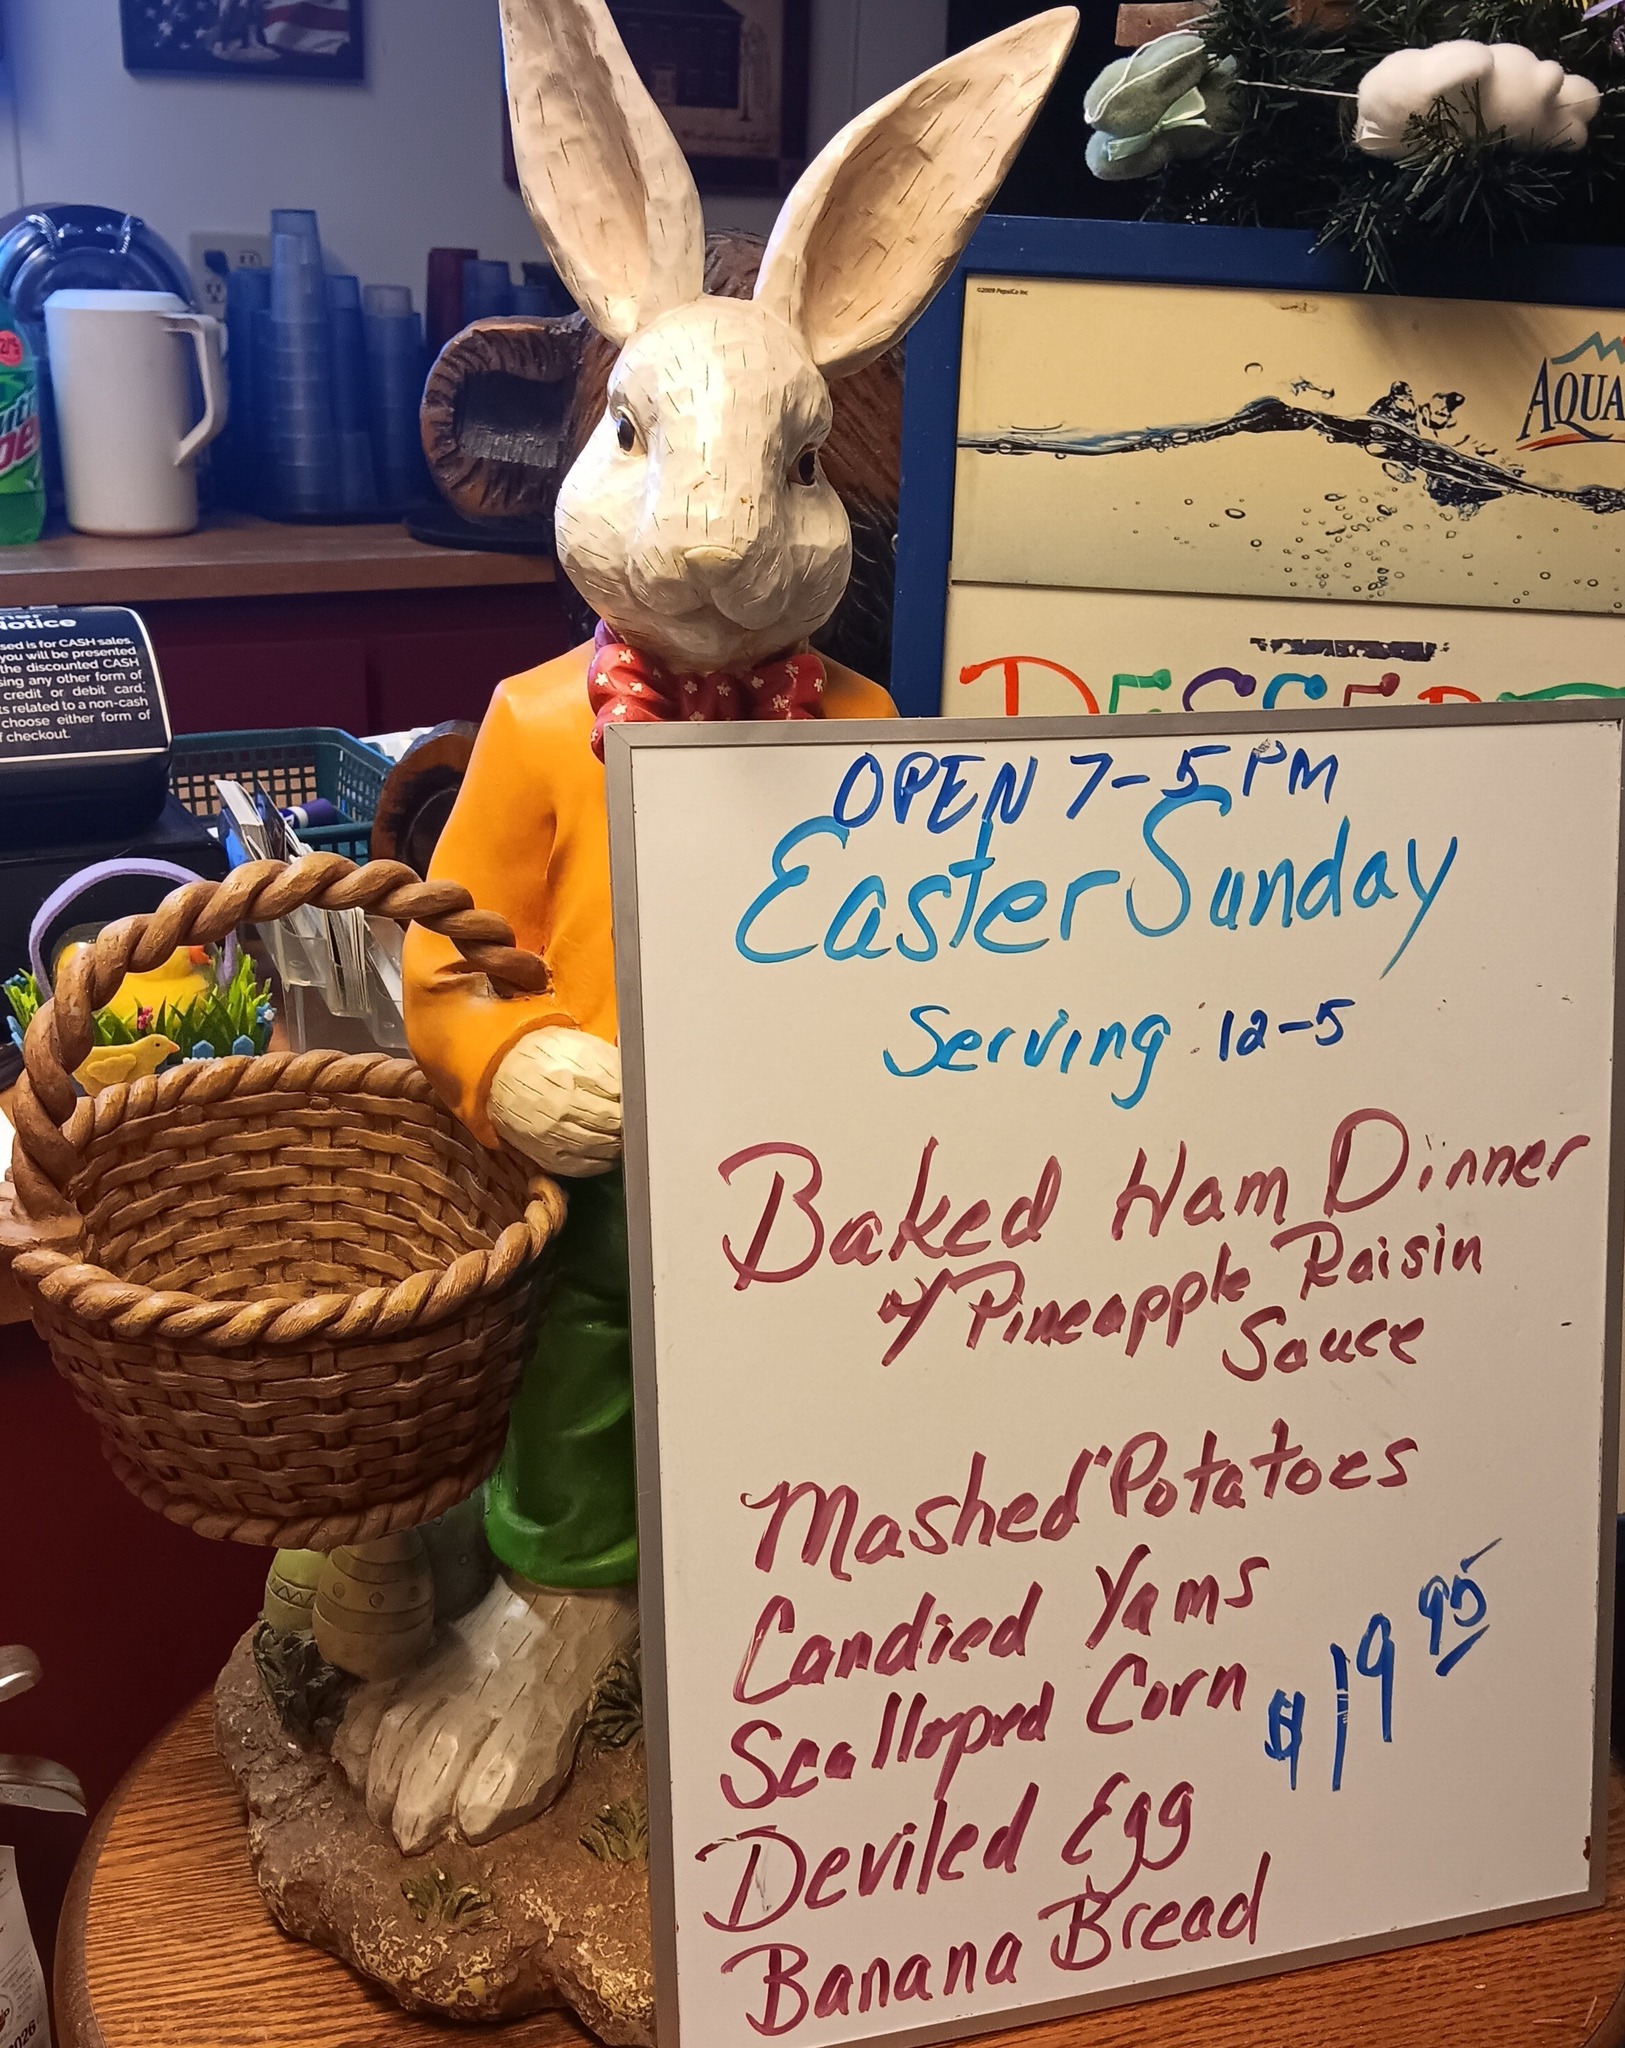 OPEN 7-5 PM
Easter Sunday
Serving 12-5
Baked Ham Dinner
w/ Pineapple Raisin
Sauce
Mashed Potatoes
Candied Yams
Scalloped Corn
$19.95
Deviled Egg
Banana Bread
©2009 PepsiCo Inc
AQUA
DESSERT
Notice
sed is for CASH sales.
you will be presented
the discounted CASH
sing any other form of
credit or debit card,
ts related to a non-cash
choose either form of
f checkout.
2/5